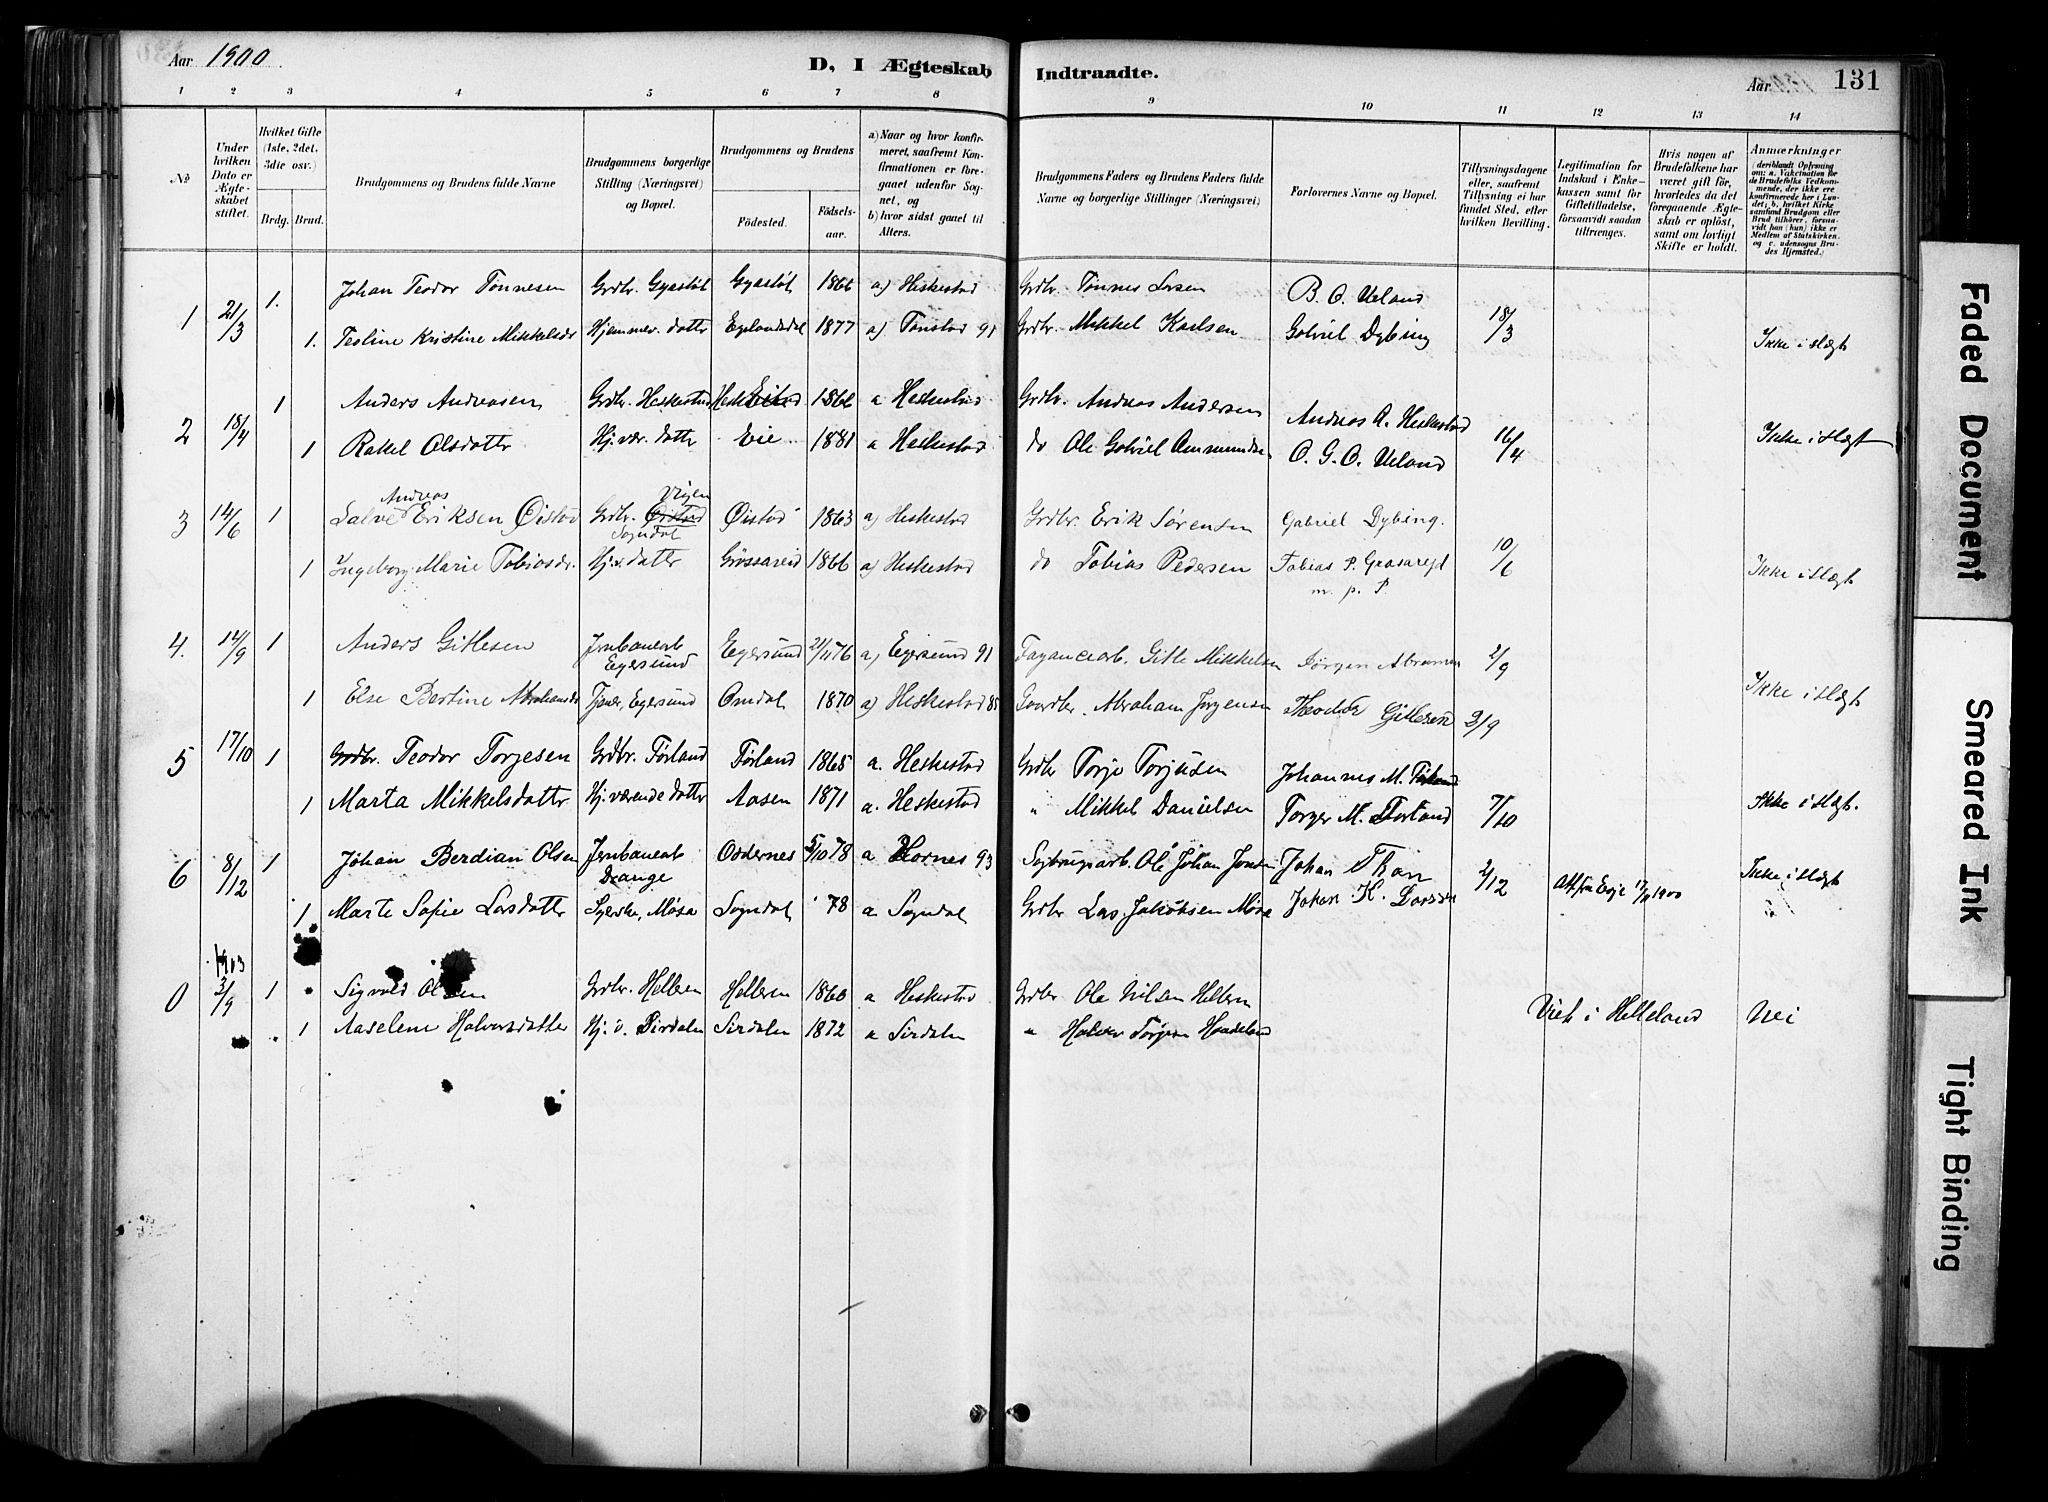 Aar 1900
D, I Ægteskab Indtraadte.
Aar
131
1 2 3 4 5 6 7 8 9 10 11 12 13 14
No
Under hvilken Dato er Ægteskabet stiftet.
Hvilket Gifte (1ste, 2det, 3die osv.)
Brdg. Brud.
Brudgommens og Brudens fulde Navne
Brudgommens borgerlige Stilling (Næringsvei) og Bopæl.
Brudgommens og Brudens
Fødested.
Fødselsaar.
a) Naar og hvor konfirmeret, saafremt Konfirmationen er foregaaet udenfor Sognet, og
b) hvor sidst gaaet til Alters.
Brudgommens Faders og Brudens Faders fulde Navne og borgerlige Stillinger (Næringsvei)
Forlovernes Navne og Bopæl.
Tillysningsdagene eller, saafremt Tillysning ei har fundet Sted, efter hvilken Bevilling.
Legitimation for Indskud i Enkekassen samt for Giftetilladelse, forsaavidt saadan tiltrænges.
Hvis nogen af Brudefolkene har været gift før, hvorledes da det foregaaende Ægteskab er opløst, samt om lovligt Skifte er holdt.
Anmærkninger
(deriblandt Oplysning om: a. Vaksination for de Brudefolks Vedkommende, der ikke ere konfirmerede her i Landet; b. hvilket Kirkesamfund Brudgom eller Brud tilhører, forsaavidt han (hun) ikke er Medlem af Statskirken, og c. udensogns Brudes Hjemsted.)
1 21/3 1. Johan Teodor Tønnesen Grdbr. Gyastøl Gyastøl 1866 a) Heskestad Grdbr. Tønnes Larsen B. O. Ueland
1. Teoline Kristine Mikkelsdr Hjemmev. datter Egelandsdal 1877 a) Tonstad 91 Grdbr. Mikkel Karlsen Gabriel Dybing 18/3 Ikke i slægt
2 18/4 1 Anders Andreasen Grdbr. Heskestad 1866 a Heskestad Grdbr. Andreas Andersen Andreas A. Heskestad
1 Rakel Olsdatter Hj. vær. datter Eie 1881 a Heskestad do Ole Gabriel Ommundsen O. G. O. Ueland 16/4 Ikke i slægt
3 14/6 1 Salve Andreas Eriksen Øistad Grdbr. Øistad Vigen Sogndal Øistad 1863 a) Heskestad Grdbr. Erik Sørensen Gabriel Dybing.
1 Ingeborg Marie Tobiasdr. Hj. v. datter Grøssareid 1866 a) Heskestad do Tobias Pedersen Tobias P. Grasarejd m. p. P. 10/6 Ikke i slægt
4. 14/9 1 Anders Gitlesen Jernbanearb Egersund Egersund 21/11 76 a) Egersund 91 Fayancearb. Gitle Mikkelsen Jørgen Abramsen 2/9
1 Else Bertine Abrahamsdr Tjener, Egersund Omdal 1870 a) Heskestad 85 Gaardbr. Abraham Jørgensen Theodor Gitlesen 2/9 Ikke i slægt
5 17/10 1 Grdbr. Teodor Torjesen Grdbr. Førland Førland 1865 a. Heskestad Grdbr Torje Torjusen Johannes M.
1 Marta Mikkelsdatter Hj. værende datter Aasen 1871 a. Heskestad " Mikkel Danielsen Torger M. Førland 7/10 Ikke i slægt.
6 8/12 1 Johan Berdian Olsen Jernbanearb Drange Oddernes 5/10 78 a Hornes 93 Sagbrugsarb. Ole Johan Jensen Johan Thor
1 Marte Sofie Lasdatter Syerske, Møsa Sogndal 78 a Sogndal Grdbr Las Jakobsen Møsa Johan K. Larsen 2/12 Att. fra Evje 17/11 1900 Ikke i slægt
1903
0 3/9 1 Sigvald Olsen Grdbr. Helleren Helleren 1860 a Heskestad Grdbr Ole Nilsen Helleren
1 Aaselene Halvorsdatter Hj. v. Sirdalen Sirdalen 1872 a Sirdalen " Halvor Torjesen Haadeland Viet i Helleland Nei
Faded Document
Smeared Ink
Tight Binding